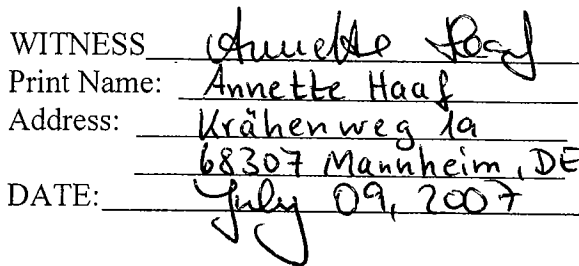 WITNESS Annette Haaf
Print Name: Annette Haaf
Address: Krähenweg 1a
68307 Mannheim, DE
DATE: July 09, 2007